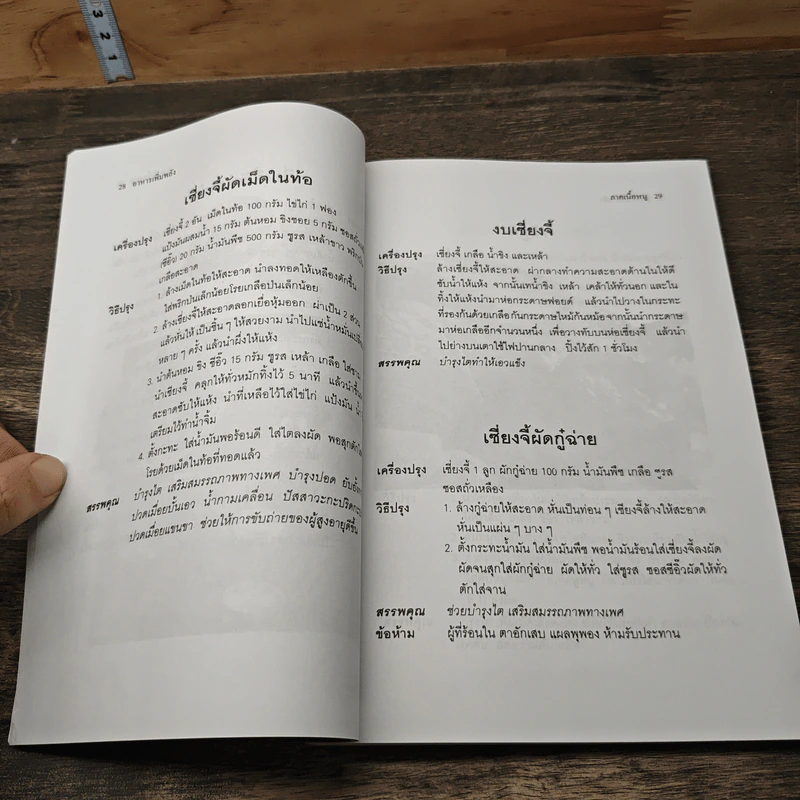 3
2
1
28 อาหารเพิ่มพลัง
เซี่ยงจี้ผัดเม็ดในท้อ
เครื่องปรุง เซี่ยงจี้ 2 อัน เม็ดในท้อ 100 กรัม ไข่ไก่ 1 ฟอง
แป้งมันผสมน้ำ 15 กรัม ต้นหอม ขิงซอย 5 กรัม
(ซีอิ๊ว) 20 กรัม น้ำมันพืช 500 กรัม ชูรส เหล้าขาว
เกลือสะอาด
วิธีปรุง 1. ล้างเม็ดในท้อให้สะอาด นำลงทอดให้เหลืองตักขึ้น
ใส่พริกป่นเล็กน้อยโรยเกลือป่นเล็กน้อย
2. ล้างเซี่ยงจี้ให้สะอาดลอกเยื่อหุ้มออก ผ่าเป็น 2 ส่วน
แล้วหั่นให้ เป็นชิ้น ๆ ให้สวยงาม นำไปแช่น้ำ
หลาย ๆ ครั้ง แล้วผึ่งให้แห้ง
3. นำต้นหอม ขิง ซีอิ๊ว 15 กรัม ชูรส เหล้า เกลือ
นำเซี่ยงจี้ คลุกให้ทั่วหมักทิ้งไว้ 5 นาที
สะอาดซับให้แห้ง นำที่เหลือไว้ใส่ไข่ไก่ แป้งมัน
เตรียมไว้ทำน้ำจิ้ม
4. ตั้งกะทะ ใส่น้ำมันพอร้อนดี ใส่ไตลงผัด
โรยด้วยเม็ดในท้อที่ทอดแล้ว
สรรพคุณ บำรุงไต เสริมสมรรถภาพทางเพศ บำรุงปอด
ปวดเมื่อยบั้นเอว น้ำกามเคลื่อน
ปวดเมื่อยแขนขา ช่วยให้การขับถ่ายของผู้สูงอายุดีขึ้น
ภาคเนื้อหมู 29
งบเซี่ยงจี้
เครื่องปรุง เซี่ยงจี้ เกลือ น้ำขิง และเหล้า
วิธีปรุง ล้างเซี่ยงจี้ให้สะอาด ผ่ากลางทำความสะอาดด้านในให้ดี
ซับน้ำให้แห้ง จากนั้นเทน้ำขิง เหล้า เคล้าให้ทั่วนอก และใน
ทิ้งให้แห้งนำมาห่อกระดาษฟอยด์ แล้วนำไปวางในกระทะ
ที่รองก้นด้วยเกลือกันกระดาษไหม้ก้นหม้อจากนั้นนำกระดาษ
มาห่อเกลืออีกจำนวนหนึ่ง เพื่อวางทับบนห่อเซี่ยงจี้ แล้วนำ
ไปย่างบนเตาใช้ไฟปานกลาง ปิ้งไว้สัก 1 ชั่วโมง
สรรพคุณ บำรุงไตทำให้เอวแข็ง
เซี่ยงจี้ผัดกู๋ฉ่าย
เครื่องปรุง เซี่ยงจี้ 1 ลูก ผักกู๋ฉ่าย 100 กรัม น้ำมันพืช เกลือ ชูรส
ซอสถั่วเหลือง
วิธีปรุง 1. ล้างกู๋ฉ่ายให้สะอาด หั่นเป็นท่อน ๆ เซี่ยงจี้ล้างให้สะอาด
หั่นเป็นแผ่น ๆ บาง ๆ
2. ตั้งกระทะน้ำมัน ใส่น้ำมันพืช พอน้ำมันร้อนใส่เซี่ยงจี้ลงผัด
ผัดจนสุกใส่ผักกู๋ฉ่าย ผัดให้ทั่ว ใส่ชูรส ซอสซีอิ๊วผัดให้ทั่ว
ตักใส่จาน
สรรพคุณ ช่วยบำรุงไต เสริมสมรรถภาพทางเพศ
ข้อห้าม ผู้ที่ร้อนใน ตาอักเสบ แผลพุพอง ห้ามรับประทาน